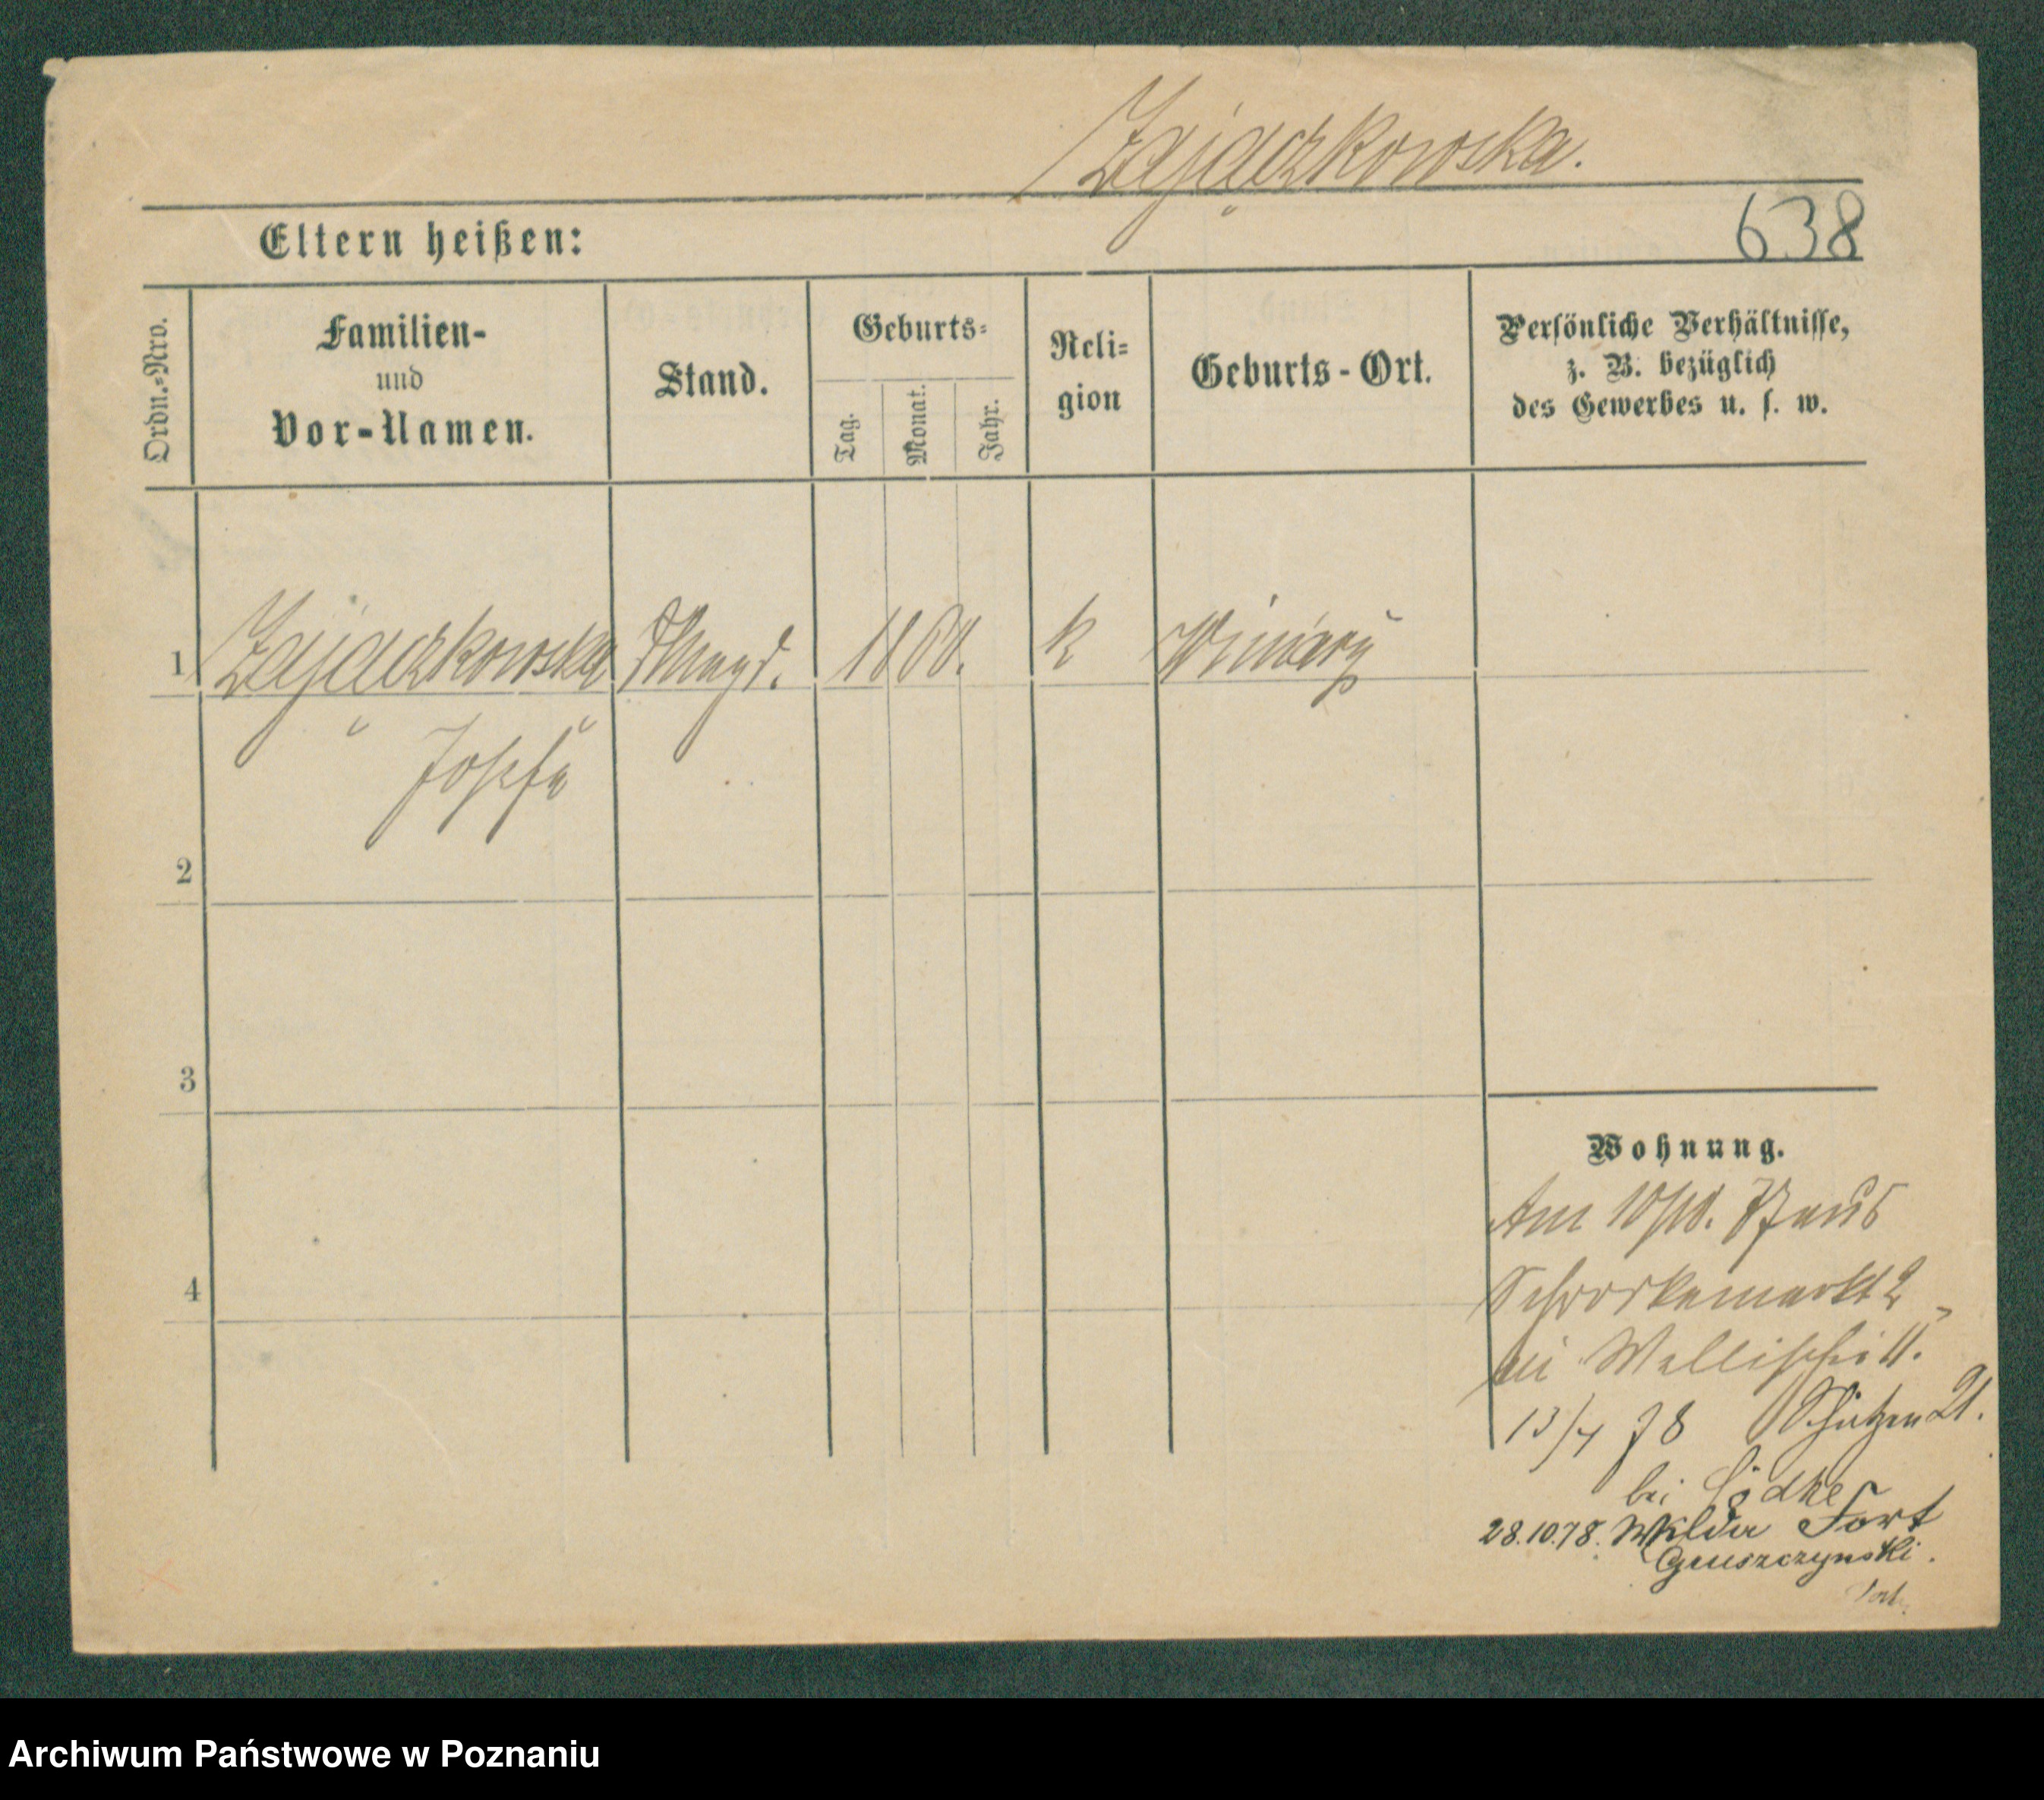 Zajączkowska.
638
Eltern heißen:
Ordn.-Nro.
Familien-
und
Vor-Namen.
Stand.
Geburts-
Tag.
Monat.
Jahr.
Reli-
gion
Geburts-Ort.
Persönliche Verhältnisse,
z. B. bezüglich
des Gewerbes u. s. w.
1 Zajączkowska k Winiary
Josefa
2
3
4
Wohnung.
Am 10/10. 77 aus
markt 2
bei Wallischei 11.
13/4 78 Schützen 21.
bei
28.10.78. Wilda Fort
Gruszczynski.
Archiwum Państwowe w Poznaniu